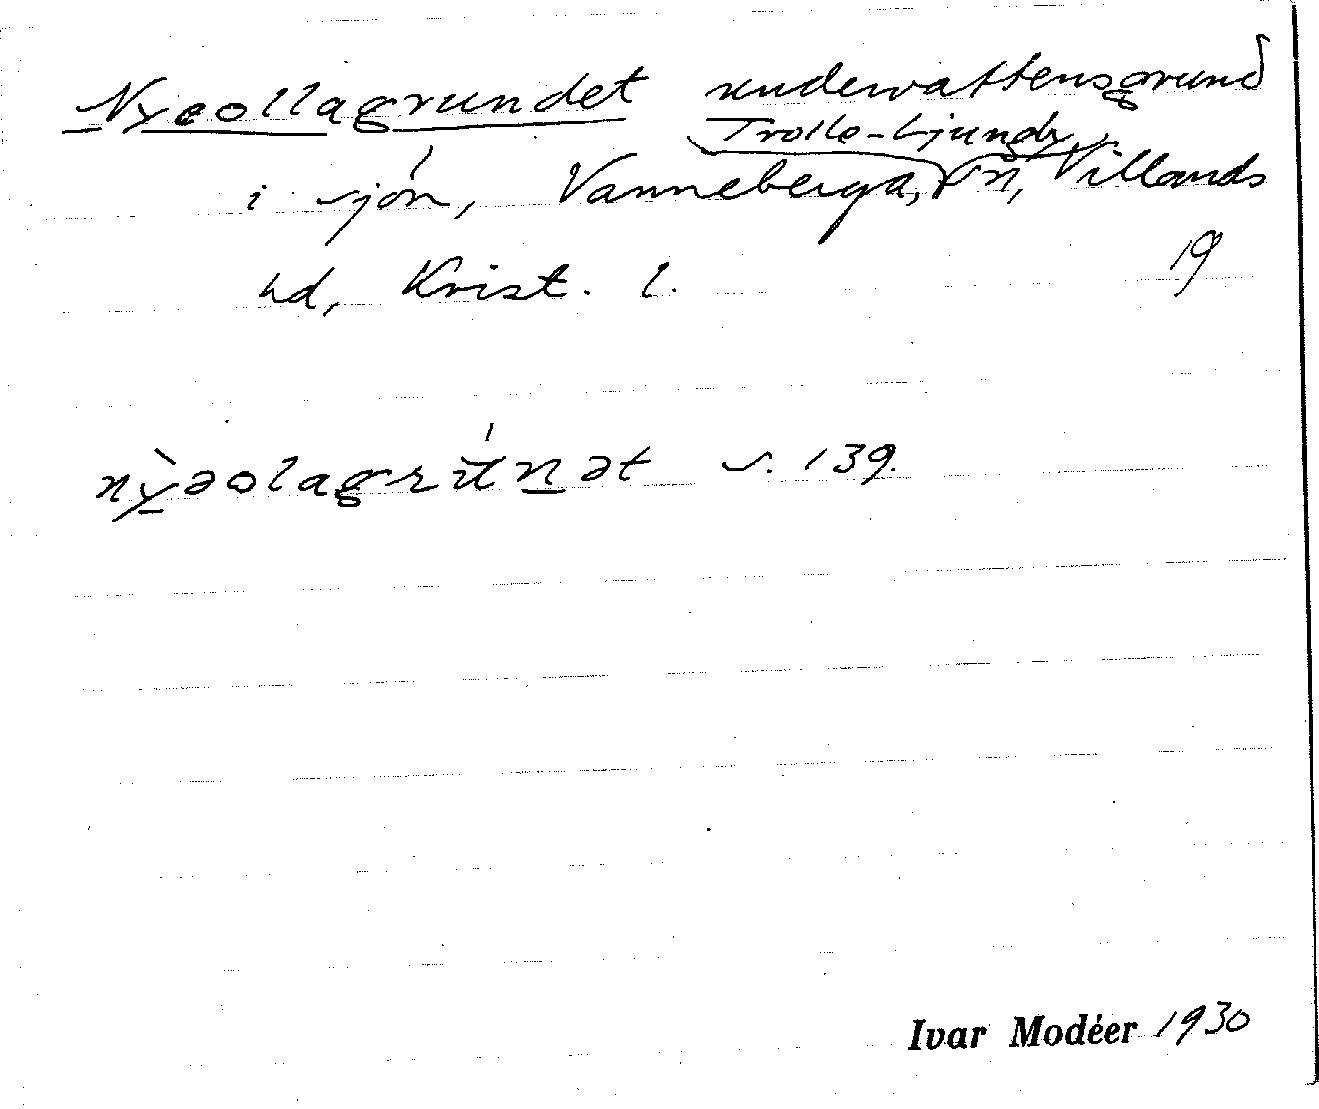 Nyeollagrundet undervattensgrund
Trolle-Ljungby
i sjön, Vanneberga, sn, Villands
hd, Krist. l. 19
nỳəolagrùnət s. 139.
Ivar Modéer 1930